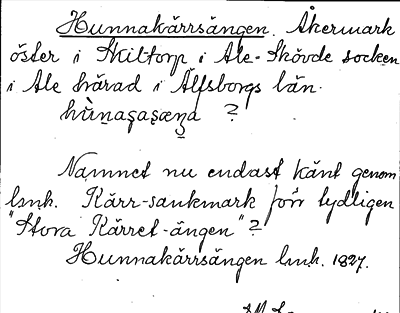 Hunnakärrsängen. Åkermark
öster i Skiltorp i Ale-Skövde socken
i Ale härad i Älfsborgs län.
?
Namnet nu endast känt genom
lmh. Kärr-sankmark förr tydligen
"Stora Kärret-ängen"?
Hunnakärrsängen lmh. 1827.